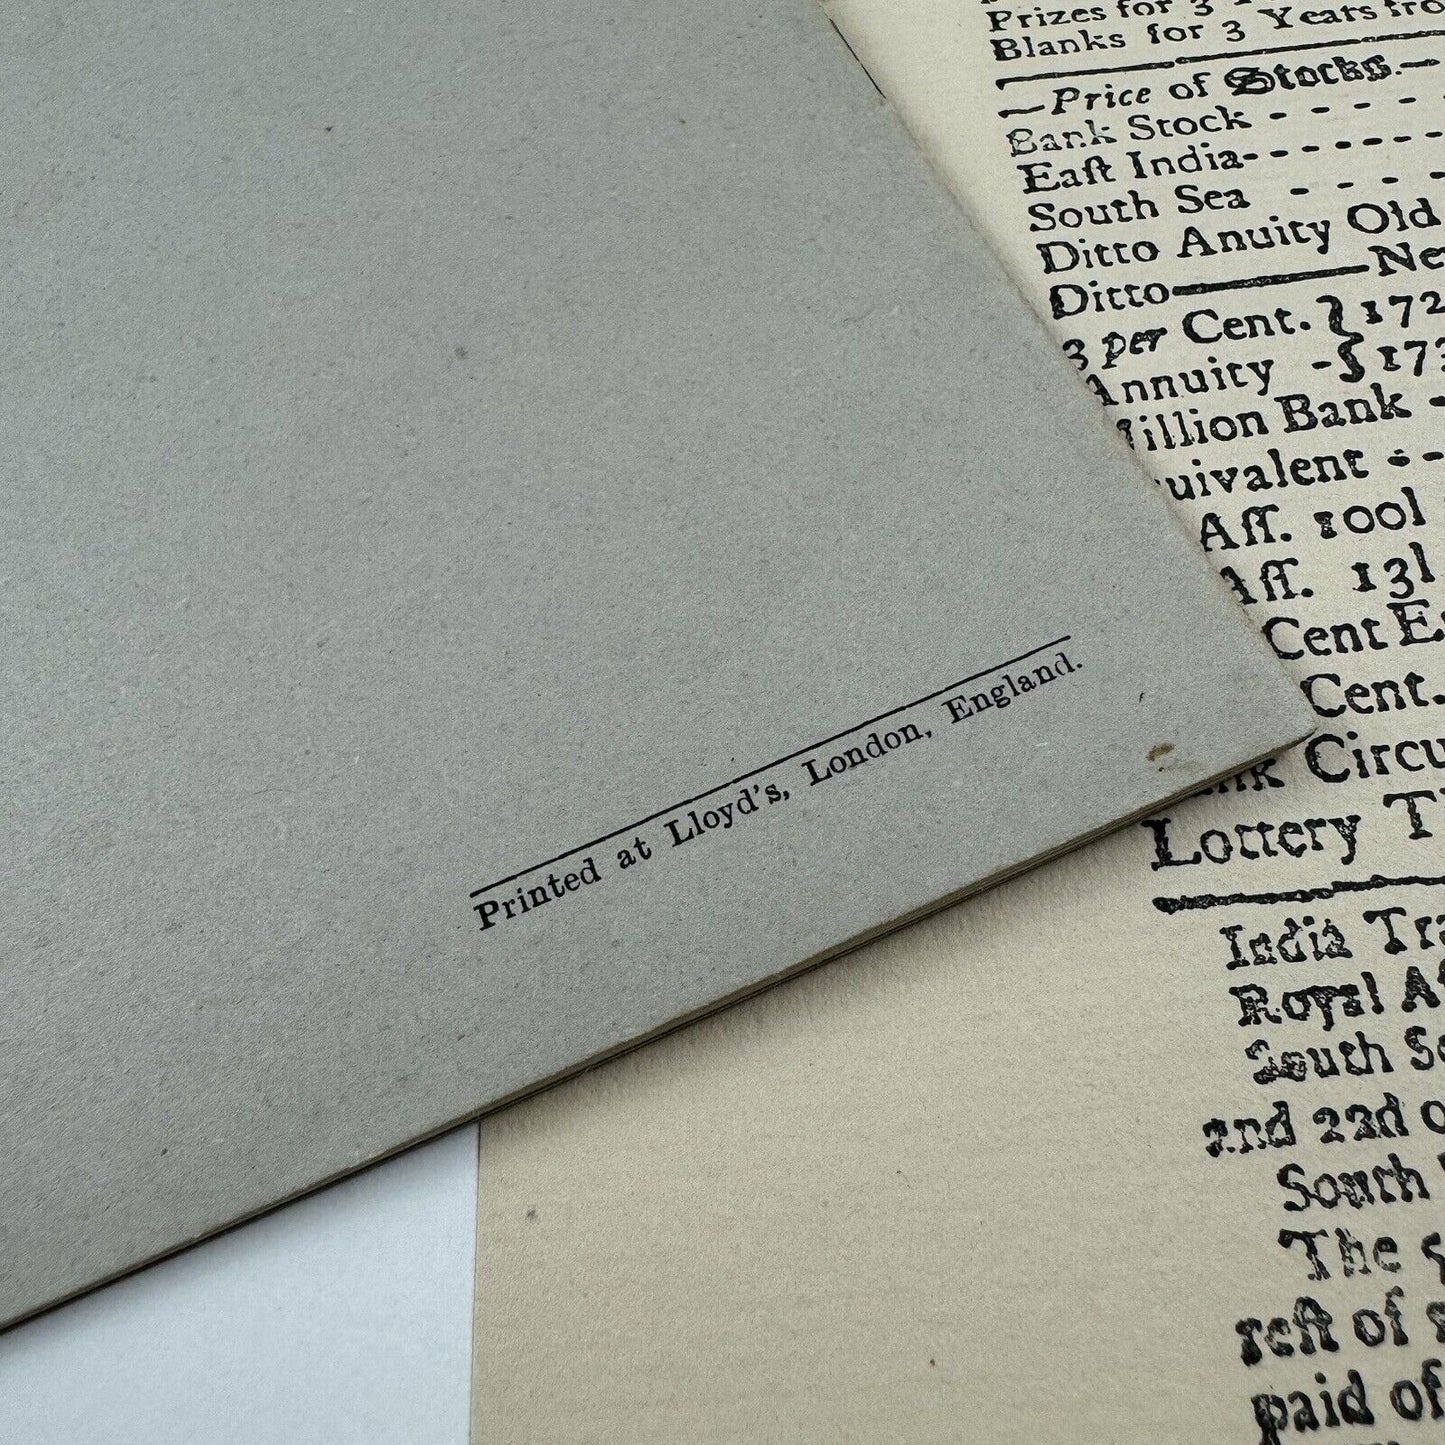 Printed at Lloyd's, London, England.
Prizes for 3
Blanks for 3 Years fro
—Price of Stocks.—
Bank Stock - - - -
Eaſt India- - - - - -
South Sea - - - -
Ditto Anuity Old
Ditto——Ne
3 per Cent. } 172
Annuity - } 173
illion Bank -
uivalent - - -
Aſſ. 100l
Aſſ. 13l
Cent E
Cent.
nk Circu
Lottery T
India Tra
Royal A
South Se
and 22d o
South
The
reſt of
paid of